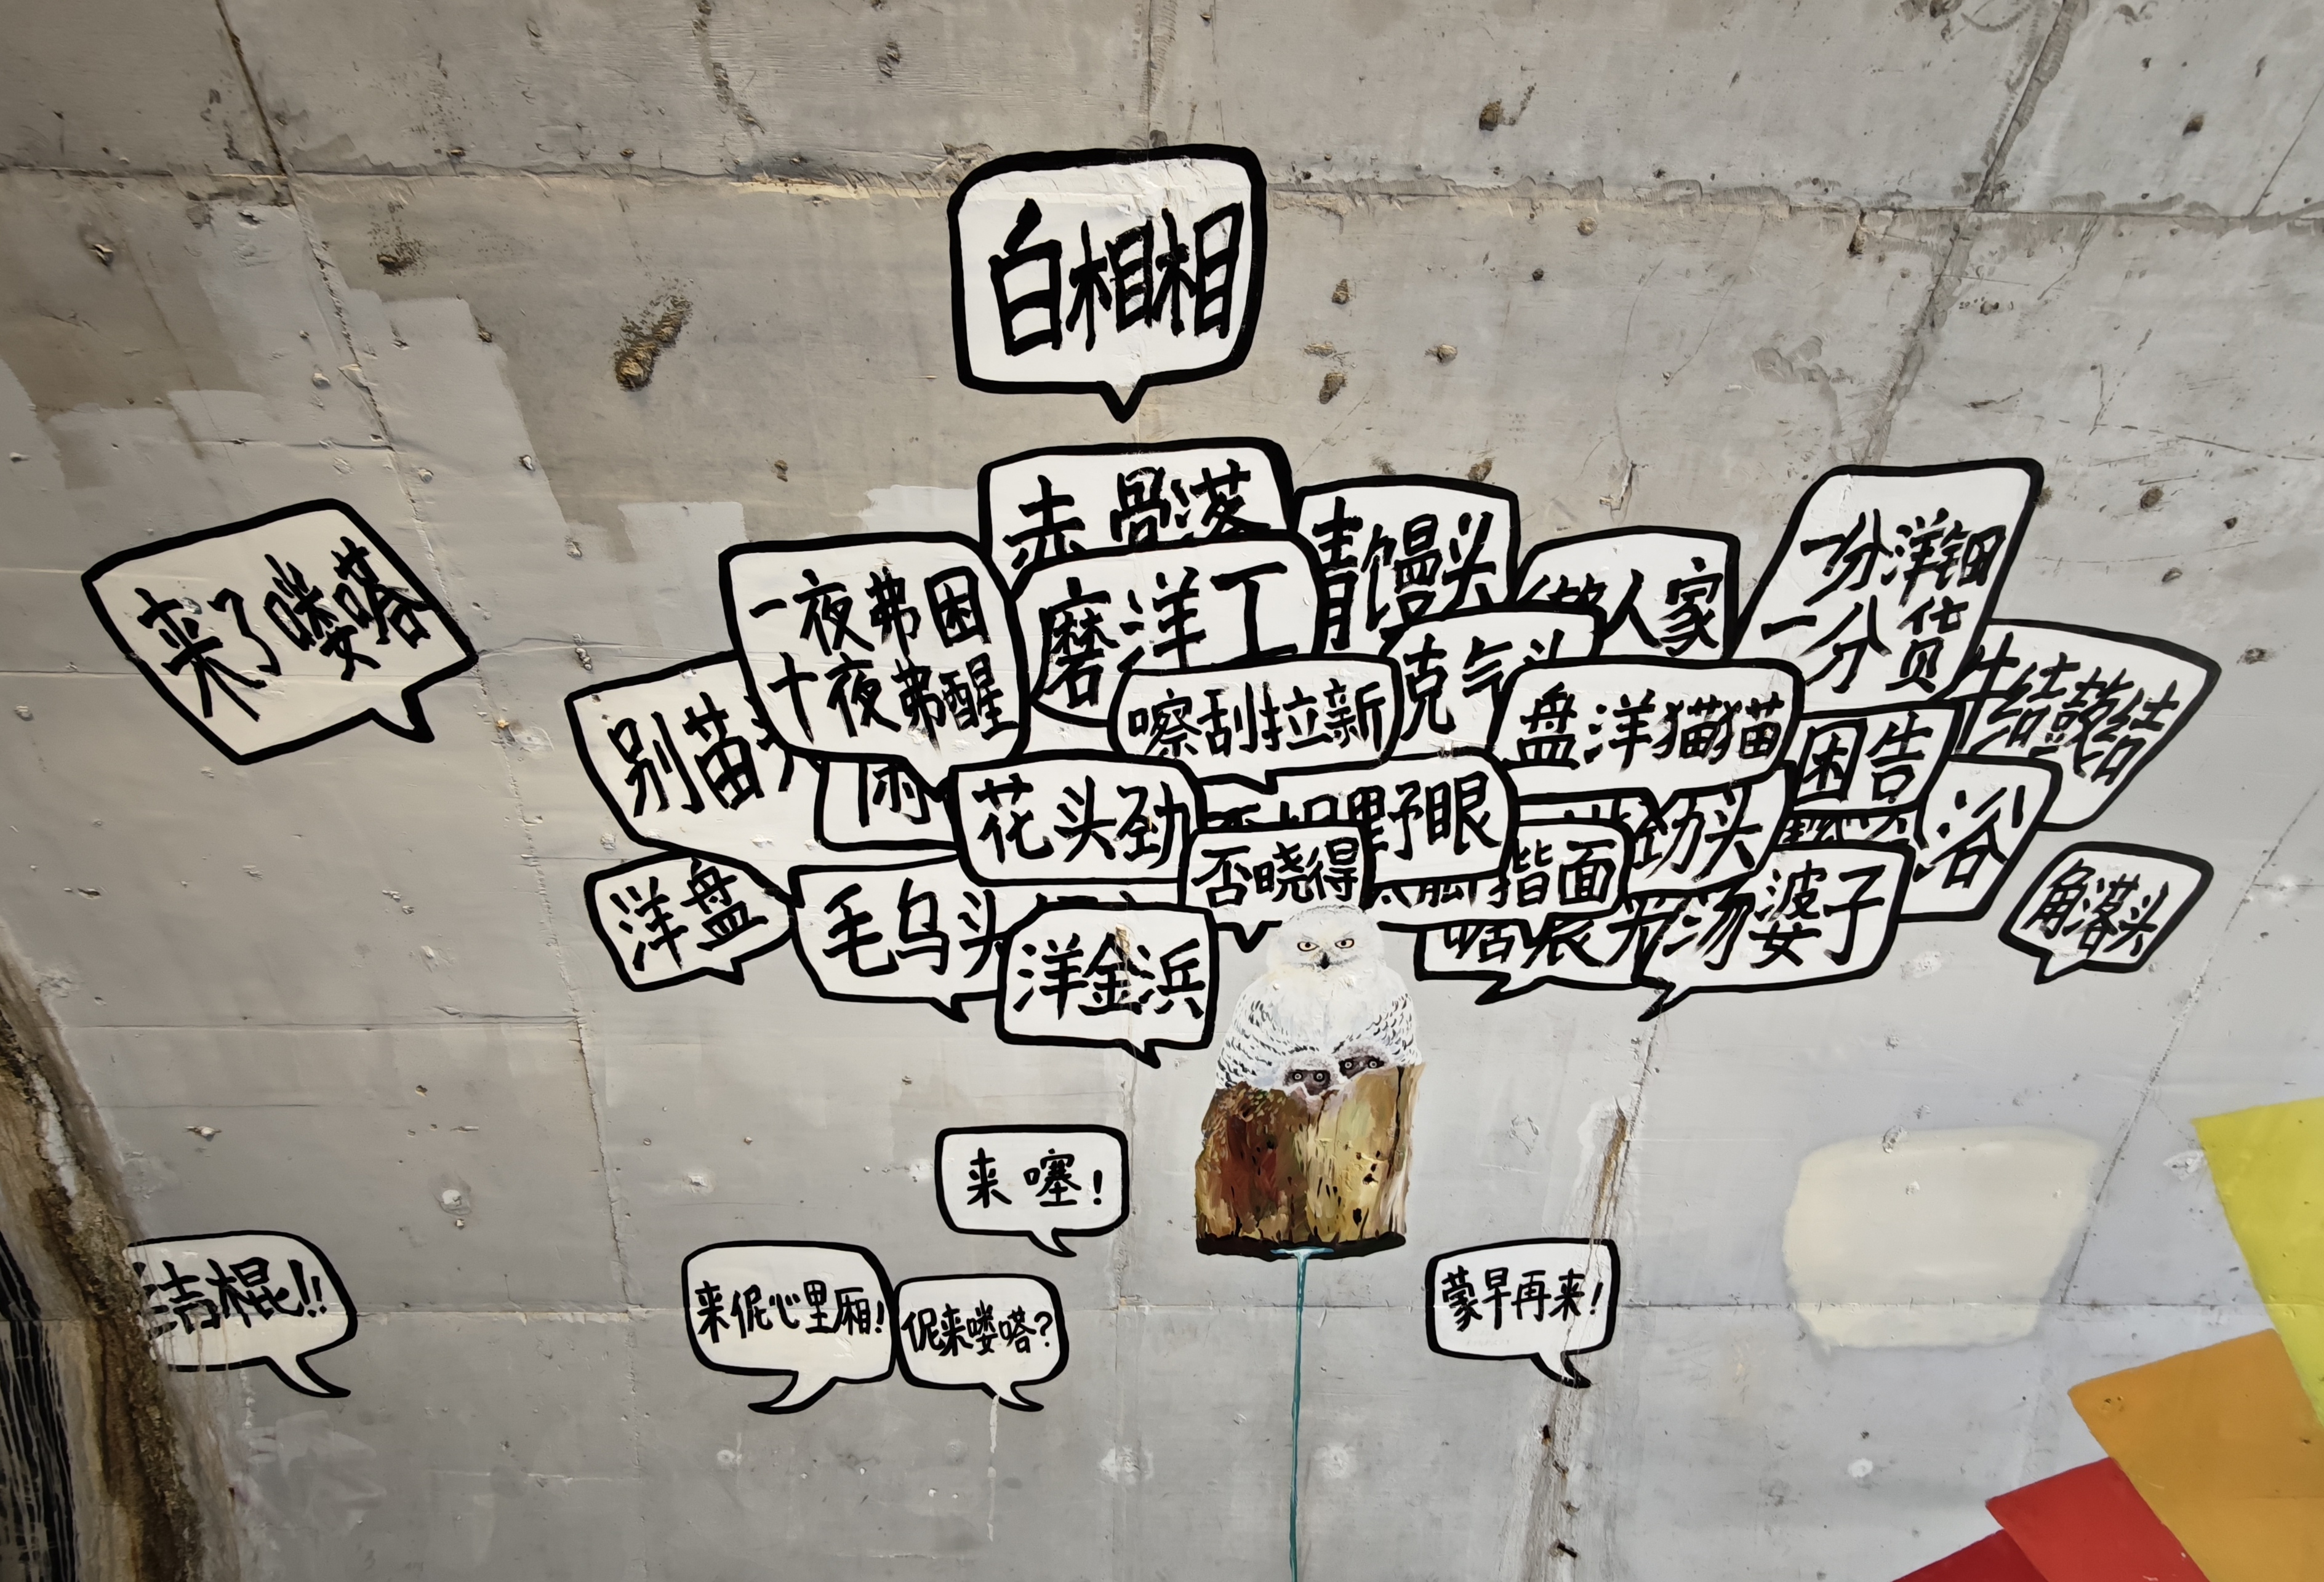 白相相
赤骨落
来了喽嗒
青馒头
做人家
一分洋钿
一分货
一夜弗困
十夜弗醒
磨洋工
牛结鼓结
别苗头
嚓刮拉新
克气头
盘洋猫猫
困告
花头劲
野眼
劲头
浴
否晓得
揩面
洋盘
毛乌头
洋金浜
汤婆子
角落头
来噻！
结棍！！
来伲心里厢！
伲来喽嗒？
蒙早再来！